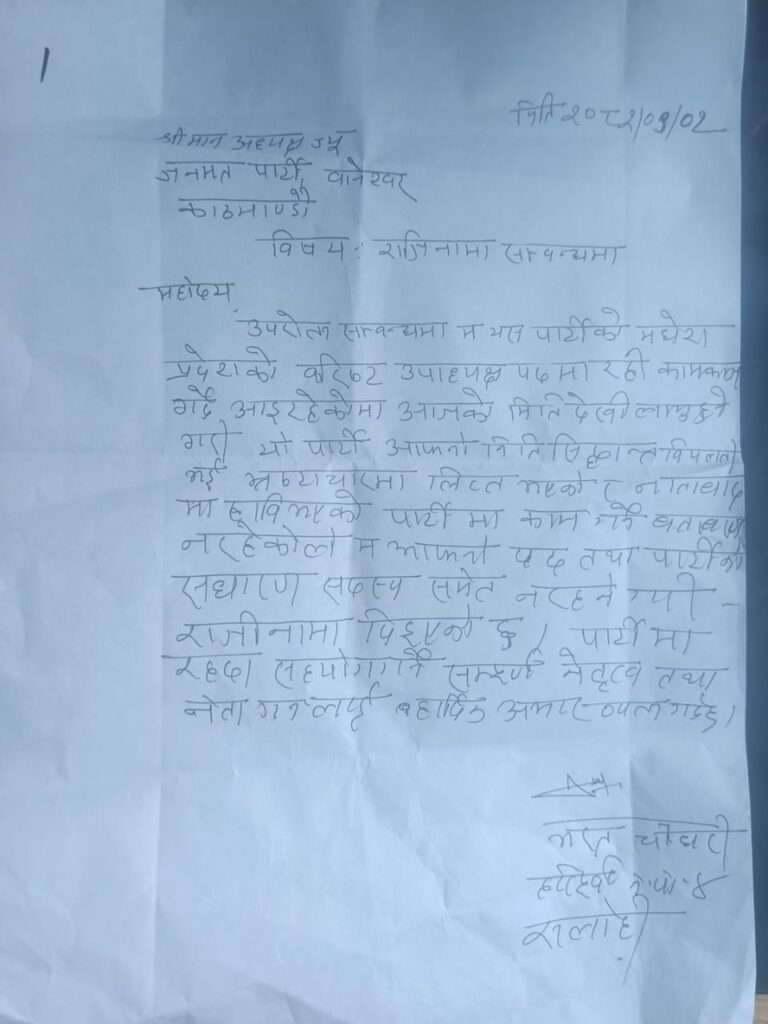 1
मिति २०८२/०९/०२
श्रीमान अध्यक्ष ज्यू
जनमत पार्टी, वानेश्वर
काठमाण्डौ
विषय: राजिनामा सम्वन्धमा
महोदय,
उपरोक्त सम्वन्धमा म यस पार्टीको मधेश
प्रदेशको वरिष्ट उपाध्यक्ष पदमा रही कामकाज
गर्दै आइरहेकोमा आजको मिति देखी लागु हुने
गरी यो पार्टी आफ्नो निति सिद्धान्त विपरित
भई भ्रष्टाचारमा लिप्त भएको र नातावाद
मा हावि भएको पार्टी मा काम गर्ने वातावरण
नरहेकोले म आफ्नो पद तथा पार्टीको
सधारण सदस्य समेत नरहने गरी -
राजीनामा दिइएको छु। पार्टी मा
रहदा सहयोग गर्ने सम्पूर्ण नेतृत्व तथा
नेता गन लाई हार्दिक आभार व्यक्त गर्दछु।
भरत चौधरी
४
सर्लाही